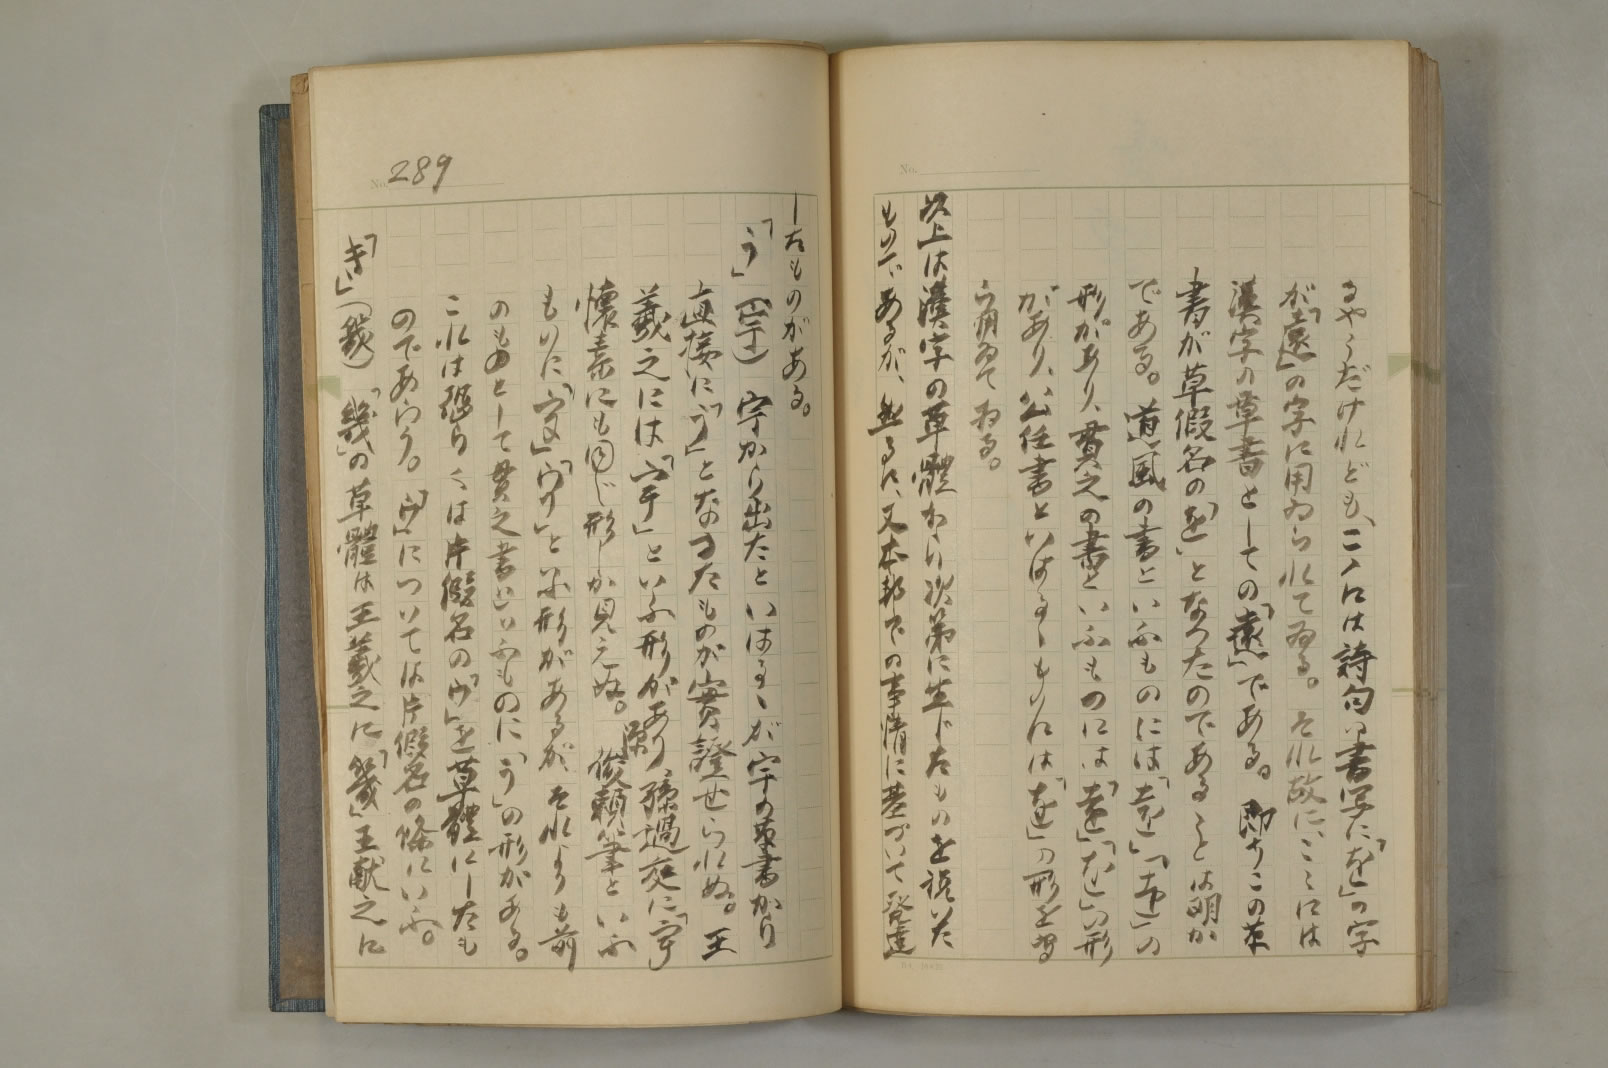 るやうだけれども、こゝには詩句の書写に「を」の字
が「遠」の字に用ゐられてゐる。それ故に、こゝには
漢字の草書としての「遠」である。即ちこの草
書が草假名の「を」となつたのであることは明か
である。道風の書といふものには「を」「を」の
形があり、貫之の書といふものには「を」「を」の形
があり、公任書といはるゝものには「を」の形を専
ら用ゐてゐる。
以上は漢字の草體から次第に生じたものを説いた
ものであるが、然るに、又本邦での事情に基づいて發達
No.
No. 289
したものがある。
「う」(宇) 宇から出たといはるゝが宇の草書から
直接に「う」となつたものが實證せられぬ。王
羲之には「宇」といふ形があり孫過庭に「宇」
懷素にも同じ形しか見えぬ。 俊頼筆といふ
ものに「う」「う」と云形があるが、それよりも前
のものとして貫之書といふものに「う」の形がある。
これは恐らくは片假名の「ウ」を草體にしたも
のであらう。「ウ」については片假名の條にいふ。
「き」(幾) 「幾」の草體は王羲之に「幾」王献之に